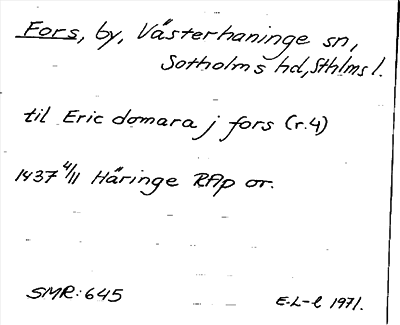 Fors, by, Västerhaninge sn,
Sotholms hd, Sthlms l.
til Eric domara j fors (r.4)
1437 4/11 Häringe RAp or.
SMR: 645
E.L-l 1971.